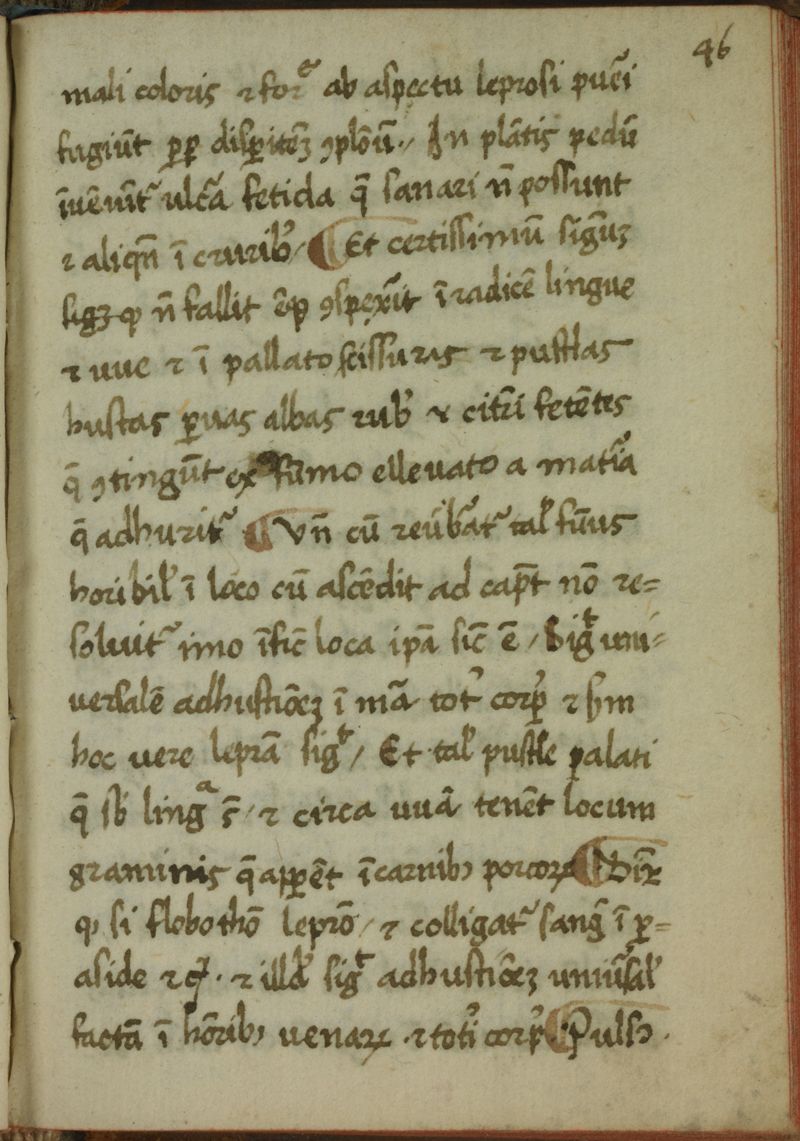 46
mali coloris ⁊ for͛ ab aspectu leprosi pueri
fugiūt ꝓp̄ disp̄itēʒ ꝯplōū. In plātis pedū
īuēiūt᷑ ulc̄a fetida q̄ sanari n̄ possunt
⁊ aliqn̄ ī crurib᷒ / Et certissimū sig̅uʒ
qꝫ n̄ fallit ꝯspex̄it ī radicē lingue
⁊ uue ⁊ ī pallato scissuras ⁊ pustl̄as
bustas ꝑuas albas rub᷒ ⁊ citrī fetētes
q̄ ꝯtingūt ex fumo ellevato a mat̄ia
q̄ adhurit᷑ Vn̄ cū reūb̄at᷑ tal̄ fumus
horibil̄ ī loco cū ascēdit ad cap̄t nō re=
soluit᷑ imo īfic̄ loca ip̄a sic̄ ē / Sigt uni=
uersalē adhustiōeʒ ī mā tot᷒ corp᷒ ⁊ sm̄
hoc vere leprā sigt / Et tal̄ pustl̄e palati
q̄ sb̄ linga s̄t ⁊ circa uuā tenēt locum
graminis q̄ apꝑēt ī carnib᷒ porcoꝝ Dix̄
ꝙ si flobothō leprō / ⁊ colligat᷑ sanḡ ī ꝑ=
aside ⁊ cꝫ . ⁊ illd̄ sigt adhustiōeʒ uniūsal̄
factā ī hōrib᷒ venaꝝ . ⁊ toti᷒ corp᷒ Puls᷒ .